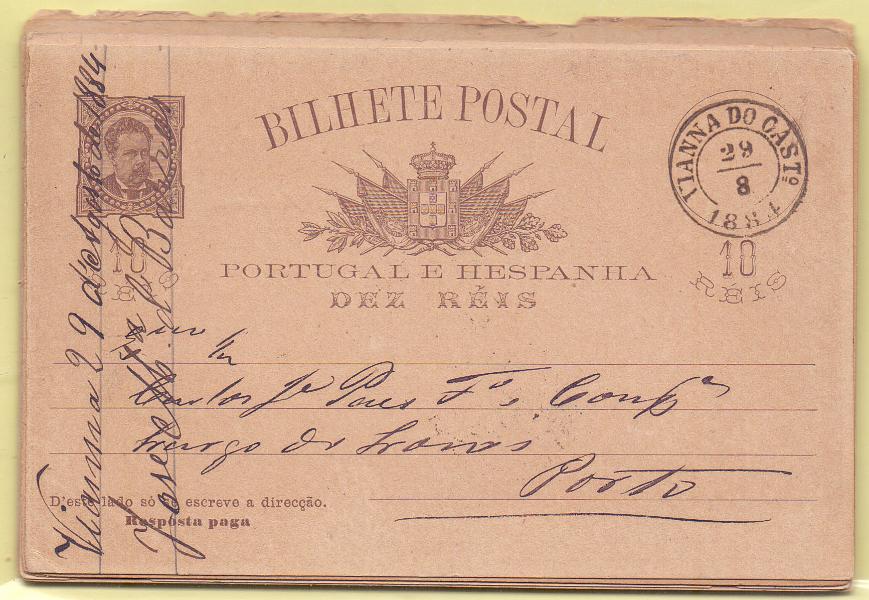 BILHETE POSTAL
PORTUGAL E HESPANHA
DEZ RÉIS
10
RÉIS
VIANNA DO CASTº
29
8
1884
10
RÉIS
Carlos Je Paes Fº & Compª
Largo dos Loyos
Porto
D'este lado só se escreve a direcção.
Resposta paga
Vianna 29 d'Agosto de 1884
José